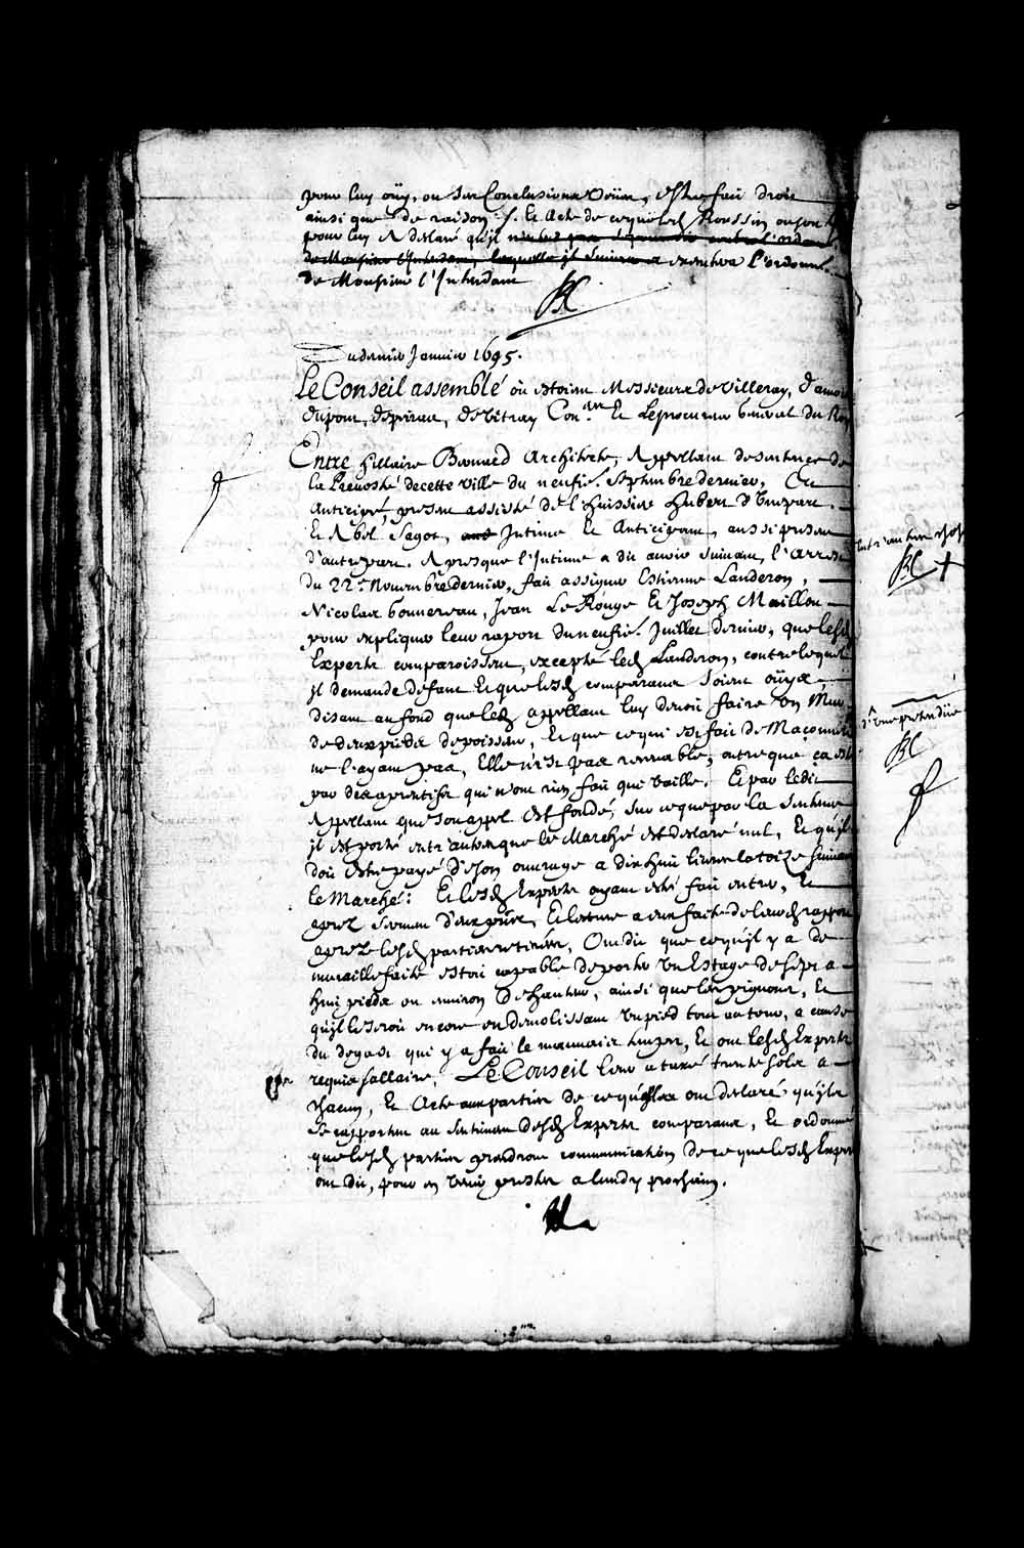 pour luy oüy, ou Ses Conclusions Veües, estre fait droit
ainsi que de raison ·/. Et Acte de ce que led Roussin
pour luy A declaré qu'il
de Monsieur l'Intendant, laquelle il executera l'ordonn.
de Monsieur l'Intendant
Du dernier Janvier 1695.
Le Conseil assemblé où estoient Messieurs de Villeray, d'amours
dupont, depeiras, de Vitray Con.ers Et Le procureur General du Roy
Entre Hillaire Bernard Architecte, Appellant de sentence de
la Prevosté de cette Ville du neufie. Septembre dernier, Et
Anticipé, present assisté de l'huissier Hubert d'Une part.
Et Abel Sagot, Intimé Et Anticipant, aussi present
d'autre part. Apres que l'Intimé a dit avoir suivant l'arrest
du 22e. Novembre dernier, fait assigner Estienne Landeron,
Nicolas bonnereau, Jean Le Rouge Et Joseph Maillou
pour expliquer leur raport du neufie. Juillet dernier, que lesd
Experts comparoissent, excepté led Landeron, contre lequel
il demande defaut Et que lesd comparans Soient oüys
disant au fond que led appellant luy devoit faire Un Mur
de deux pieds depoisseur, Et que ce qui est fait de Maçonnerie
ne l'ayant pas, Elle n'est pas recevable, outre que ça esté
par des aprentifs qui n'ont rien fait qui vaille. Et par ledit
Appellant que son appel Est fondé, sur ce que par la Sentence
il est porté entr'autres que le Marché est declaré nul, Et qu'il
doit estre payé de son ouvrage a dix huit livres la toize suivant
le Marché: Et lesd Experts ayant esté fait entrer, Et
apres serment d'eux pris, Et lecture a eux faite de leurd rapport
apres lesd parties retirées, Ont dit que ce qu'il y a de
muraille faite estoit capable de porter Un Estage de sept a
huit pieds ou environ de hauteur, ainsi que les pignons, Et
qu'il le seroit encore en demolissant Un pied tout au tour, a cause
du degast qui y a fait le mauvais temps, Et ont lesd Experts
requis sallaire, Le Conseil leur a taxé trente sols a
chacun, Et Acte aux parties de ce qu'elles ont declaré qu'ils
Se rapportent au sentiment desd Experts comparans, Et ordonne
que lesd parties prendront communication de ce que lesd Experts
ont dit, pour en venir prests a lundy prochain.
d'Une pretendüe